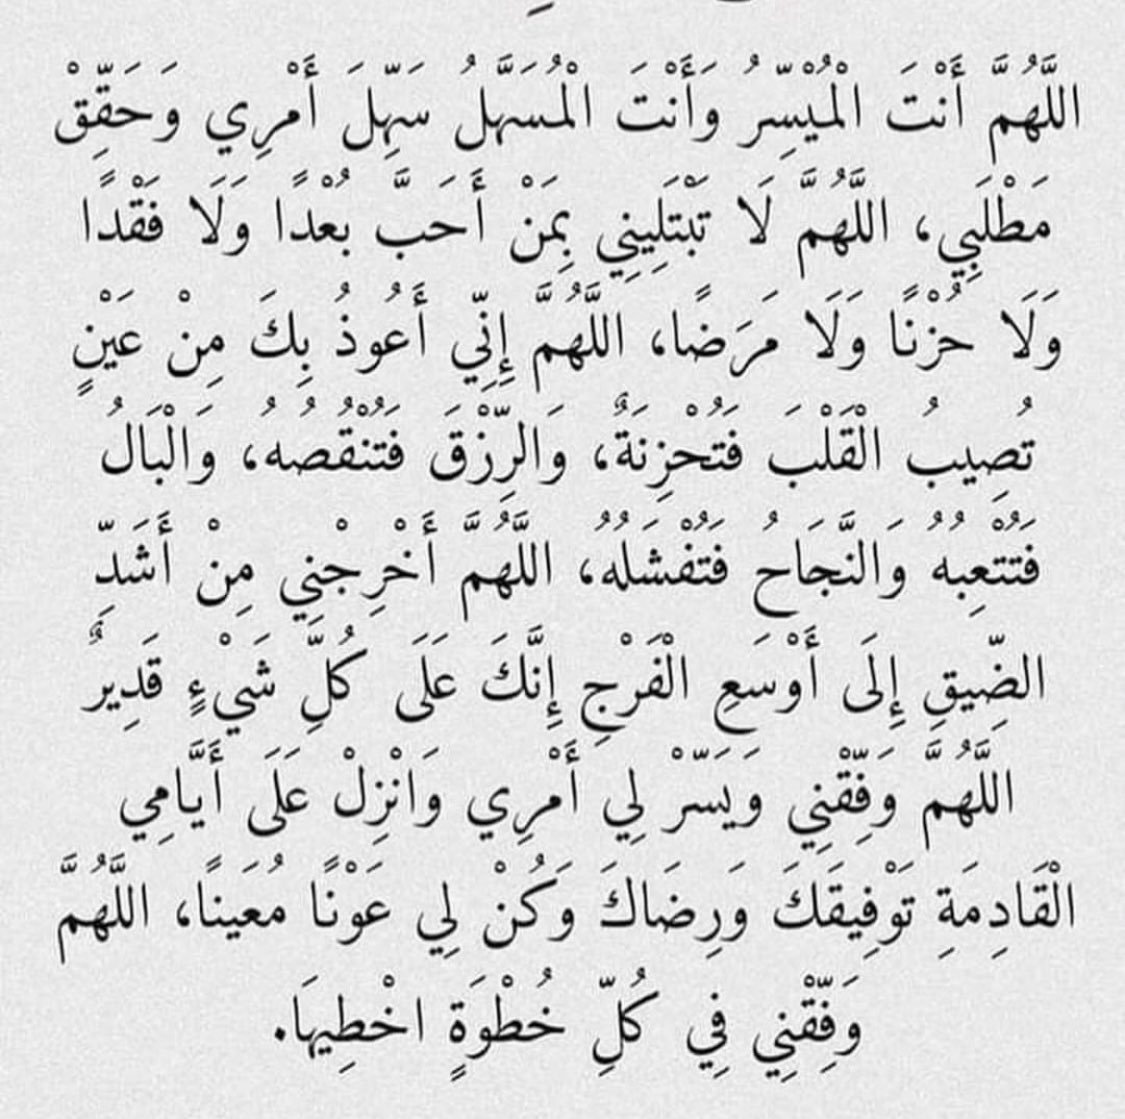 اللَّهُمَّ أَنْتَ الْمُيَسِّرُ وَأَنْتَ الْمُسَهَّلُ سَهِّلَ أَمْرِي وَحَقِّقْ
مَطْلَبِي، اللَّهُمَّ لَا تَبْتَلِينِي بِمَنْ أَحَبَّ بُعْدًا وَلَا فَقْدًا
وَلَا حُزْنًا وَلَا مَرَضًا، اللَّهُمَّ إِنِّي أَعُوذُ بِكَ مِنْ عَيْنٍ
تُصِيبُ الْقَلْبَ فَتُحْزِنَةٌ، وَالرِّزْقَ فَتُنْقُصُهُ، وَالْبَالُ
فَتُتْعِبُهُ وَالنَّجَاحُ فَتُفْشَلُهُ، اللَّهُمَّ أَخْرِجْنِي مِنْ أَشَدِّ
الضِّيقِ إِلَى أَوْسَعِ الْفَرْجِ إِنَّكَ عَلَى كُلِّ شَيْءٍ قَدِيرٌ
اللَّهُمَّ وَفِّقْنِي وَيَسِّرْ لِي أَمْرِي وَانْزِلْ عَلَى أَيَّامِي
الْقَادِمَةِ تَوْفِيقَكَ وَرِضَاكَ وَكُنْ لِي عَوْنًا مُعَينًا، اللَّهُمَّ
وَفِّقْنِي فِي كُلِّ خُطْوَةٍ اخْطِيهَا.